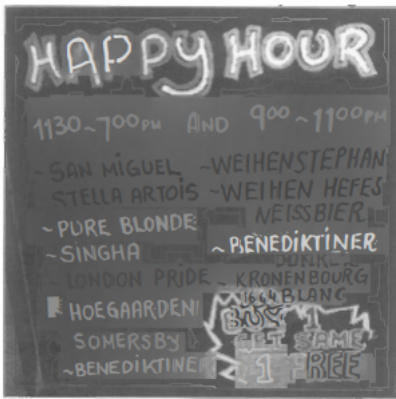 HAPPY HOUR
1130~700PM AND 900~1100PM
~SAN MIGUEL
STELLA ARTOIS
~PURE BLONDE
~SINGHA
~LONDON PRIDE
HOEGAARDEN
SOMERSBY
~BENEDIKTINER
~WEIHENSTEPHAN
~WEIHEN HEFES
WEISSBIER
~BENEDIKTINER
DUNKEL
~KRONENBOURG
1664 BLANC
BUY 1
GET SAME
1 FREE